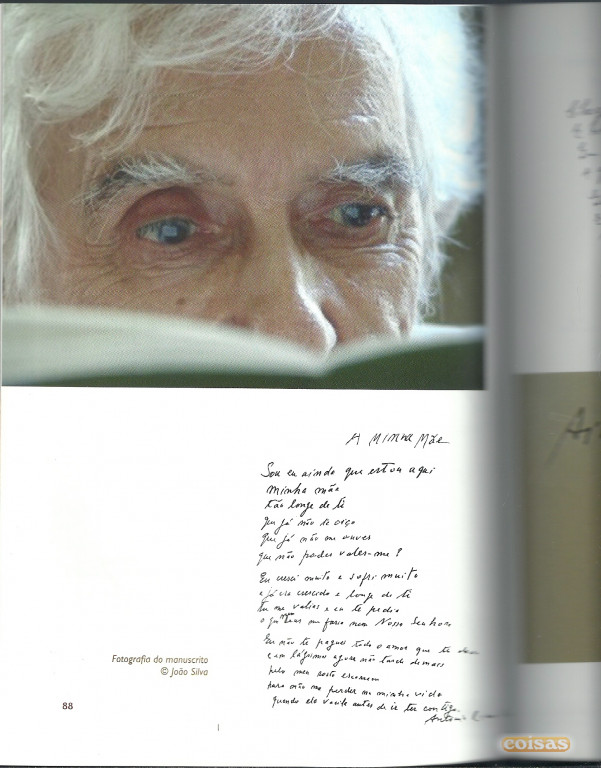 A Minha Mãe
Sou eu ainda que estou aqui
minha mãe
tão longe de ti
que já não te oiço
que já não me ouves
que não podes valer-me?
Eu cresci muito e sofri muito
e já crescido e longe de ti
tu me valias e eu te pedia
o que me nem Nosso Senhor
Eu não te paguei todo o amor que te
e em lágrimas agora não tarde demais
pelo meu rosto escorrem
para não me perder na minha vida
quando ela vacile antes de ir ter contigo.
António
Fotografia do manuscrito
© João Silva
88
coisas